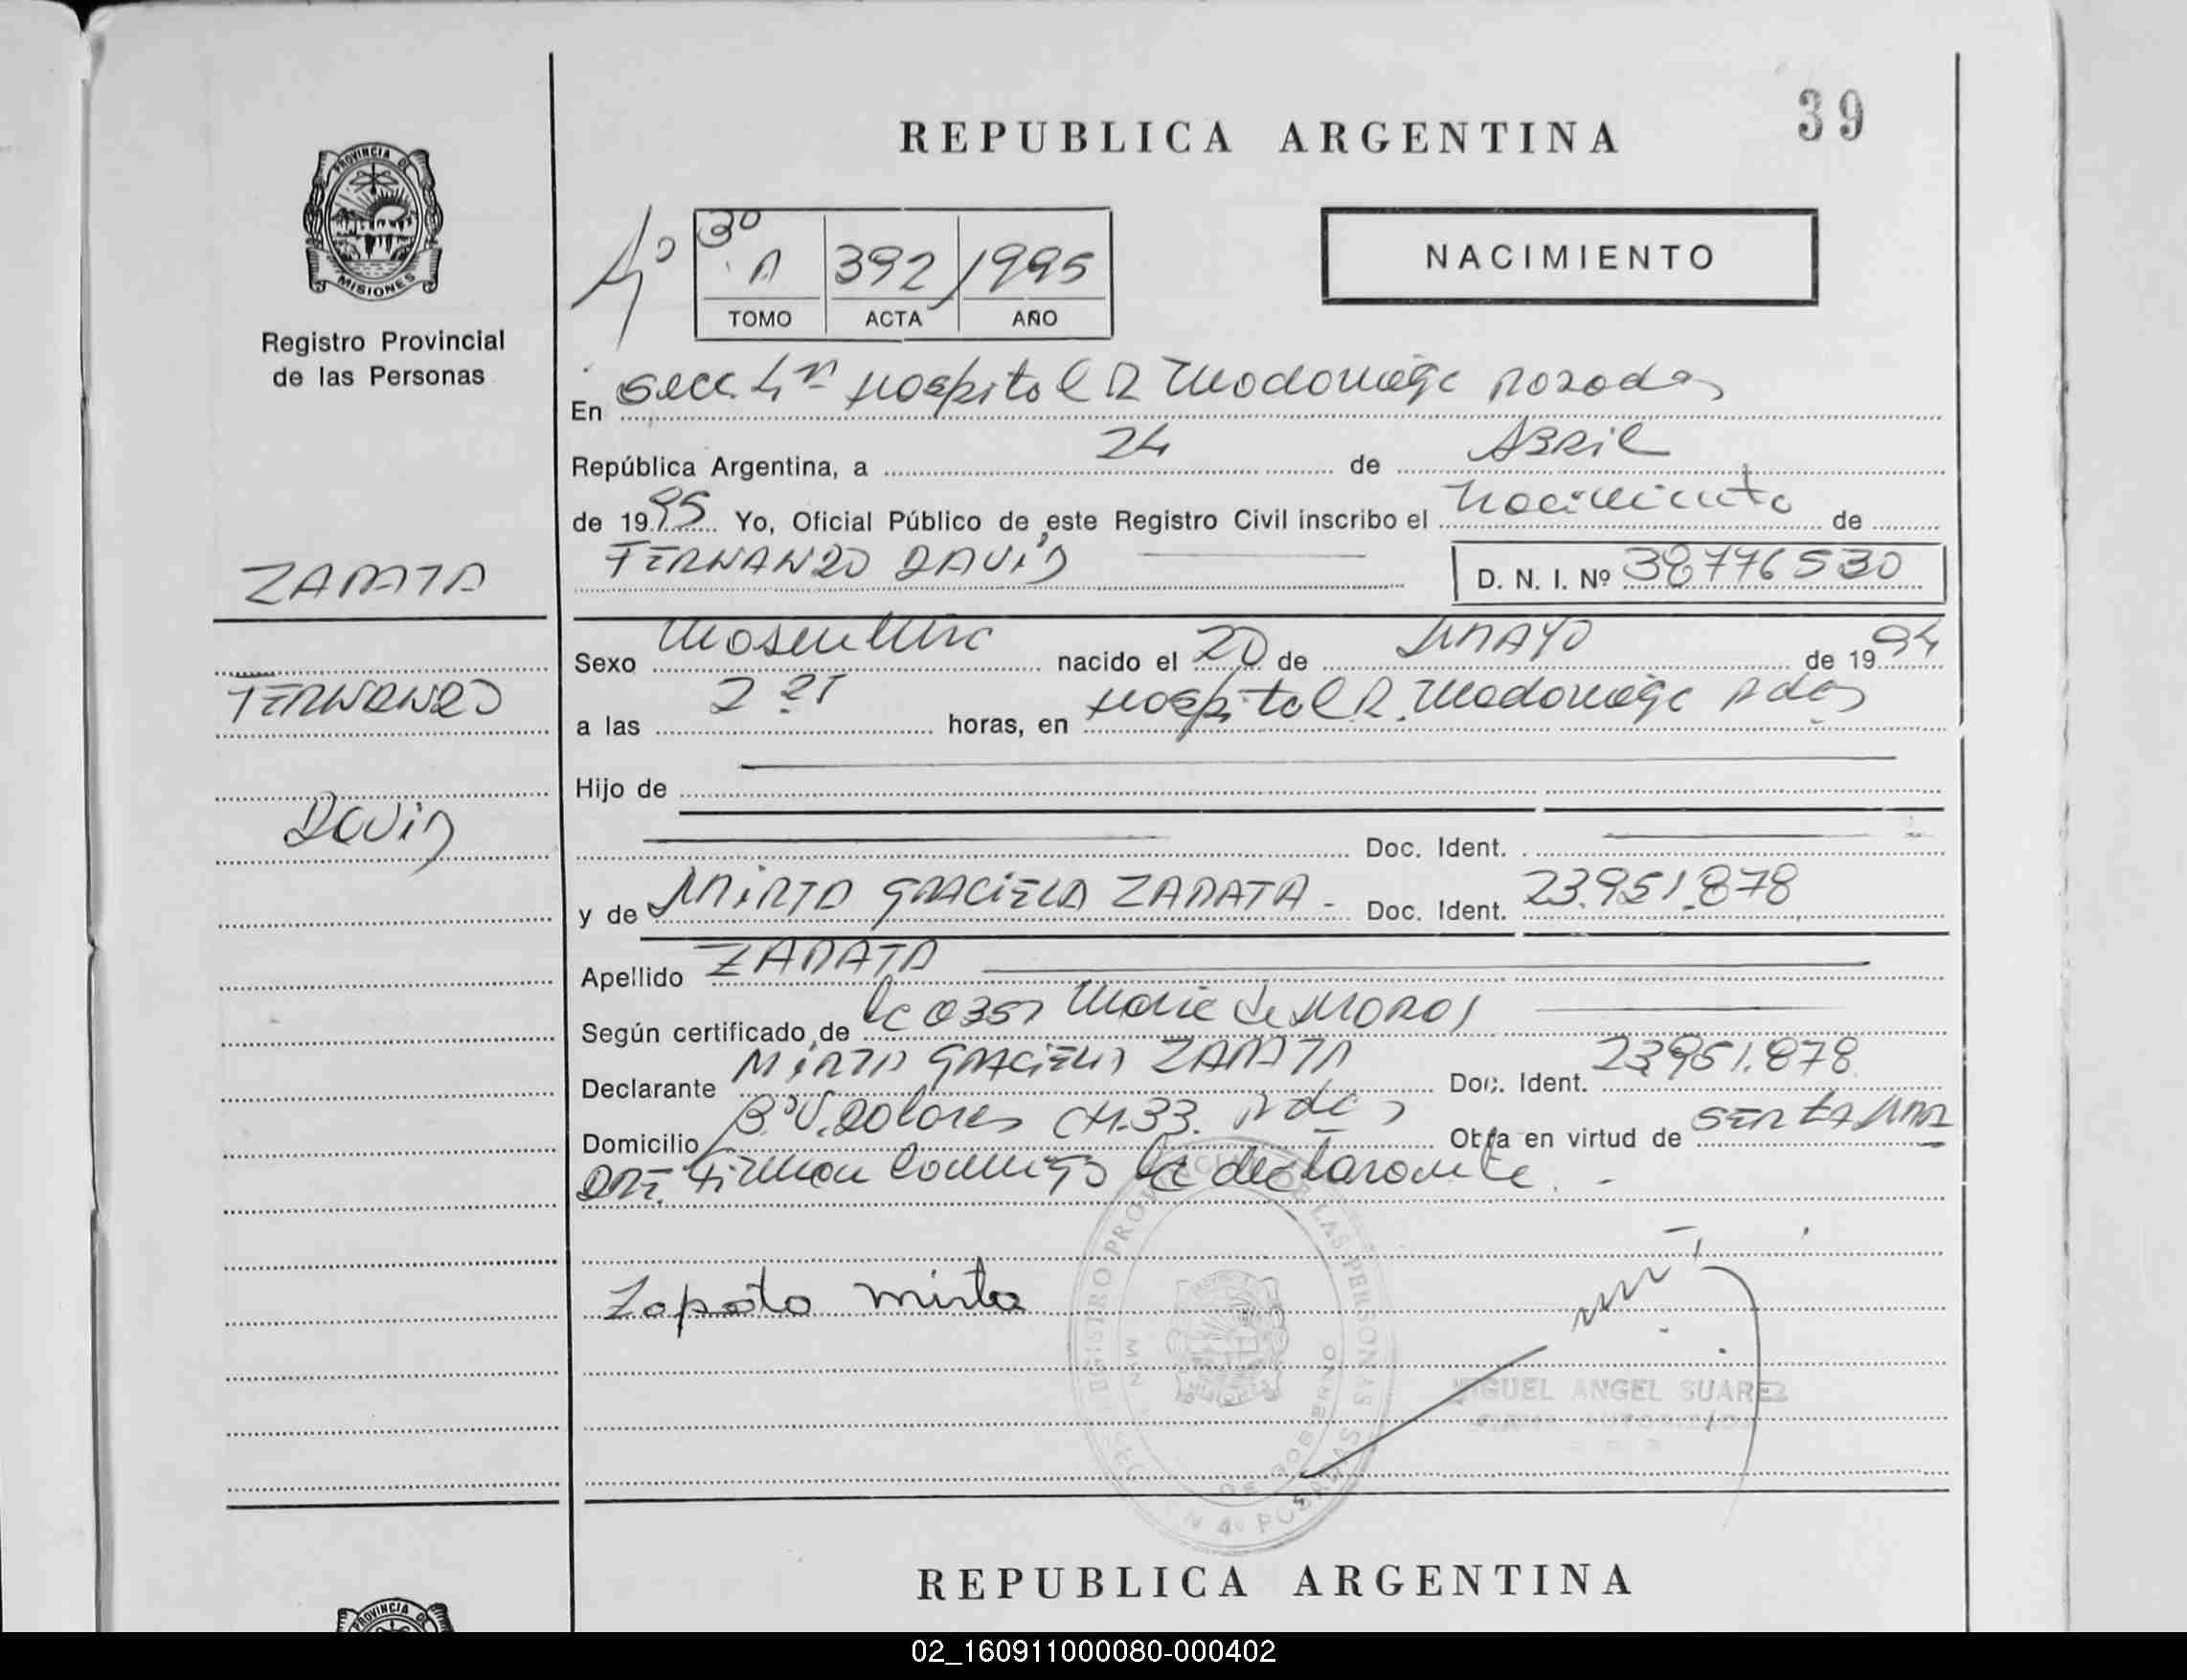 39
REPUBLICA ARGENTINA
PROVINCIA DE
MISIONES
Registro Provincial
de las Personas
NACIMIENTO
4º 3º A 392 1995
TOMO ACTA AÑO
En Secc. 4ª Hospital R Madariaga Posadas
República Argentina, a 24 de ABRIL
de 1995 Yo, Oficial Público de este Registro Civil inscribo el nacimiento de
FERNANDO DAVID D. N. I. Nº 38776530
ZAPATA
FERNANDO
DAVID
Sexo masculino nacido el 20 de MAYO de 1994
a las horas, en Hospital R. Madariaga Pdas
Hijo de
Doc. Ident.
y de MIRTA GRACIELA ZAPATA - Doc. Ident. 23.951.878
Apellido ZAPATA
Según certificado de Maria de
Declarante MIRTA GRACIELA ZAPATA Doc. Ident. 23951.878
Domicilio Bº V. Dolores CH.33. Pdas Obra en virtud de SER LA MA
DRE. Firman conmigo la declarante. -
Zapata Mirta
REGISTRO PROVINCIAL DE LAS PERSONAS
MIGUEL ANGEL SUAREZ
FIRMA AUTORIZADA
REPUBLICA ARGENTINA
PROVINCIA DE
02_160911000080-000402